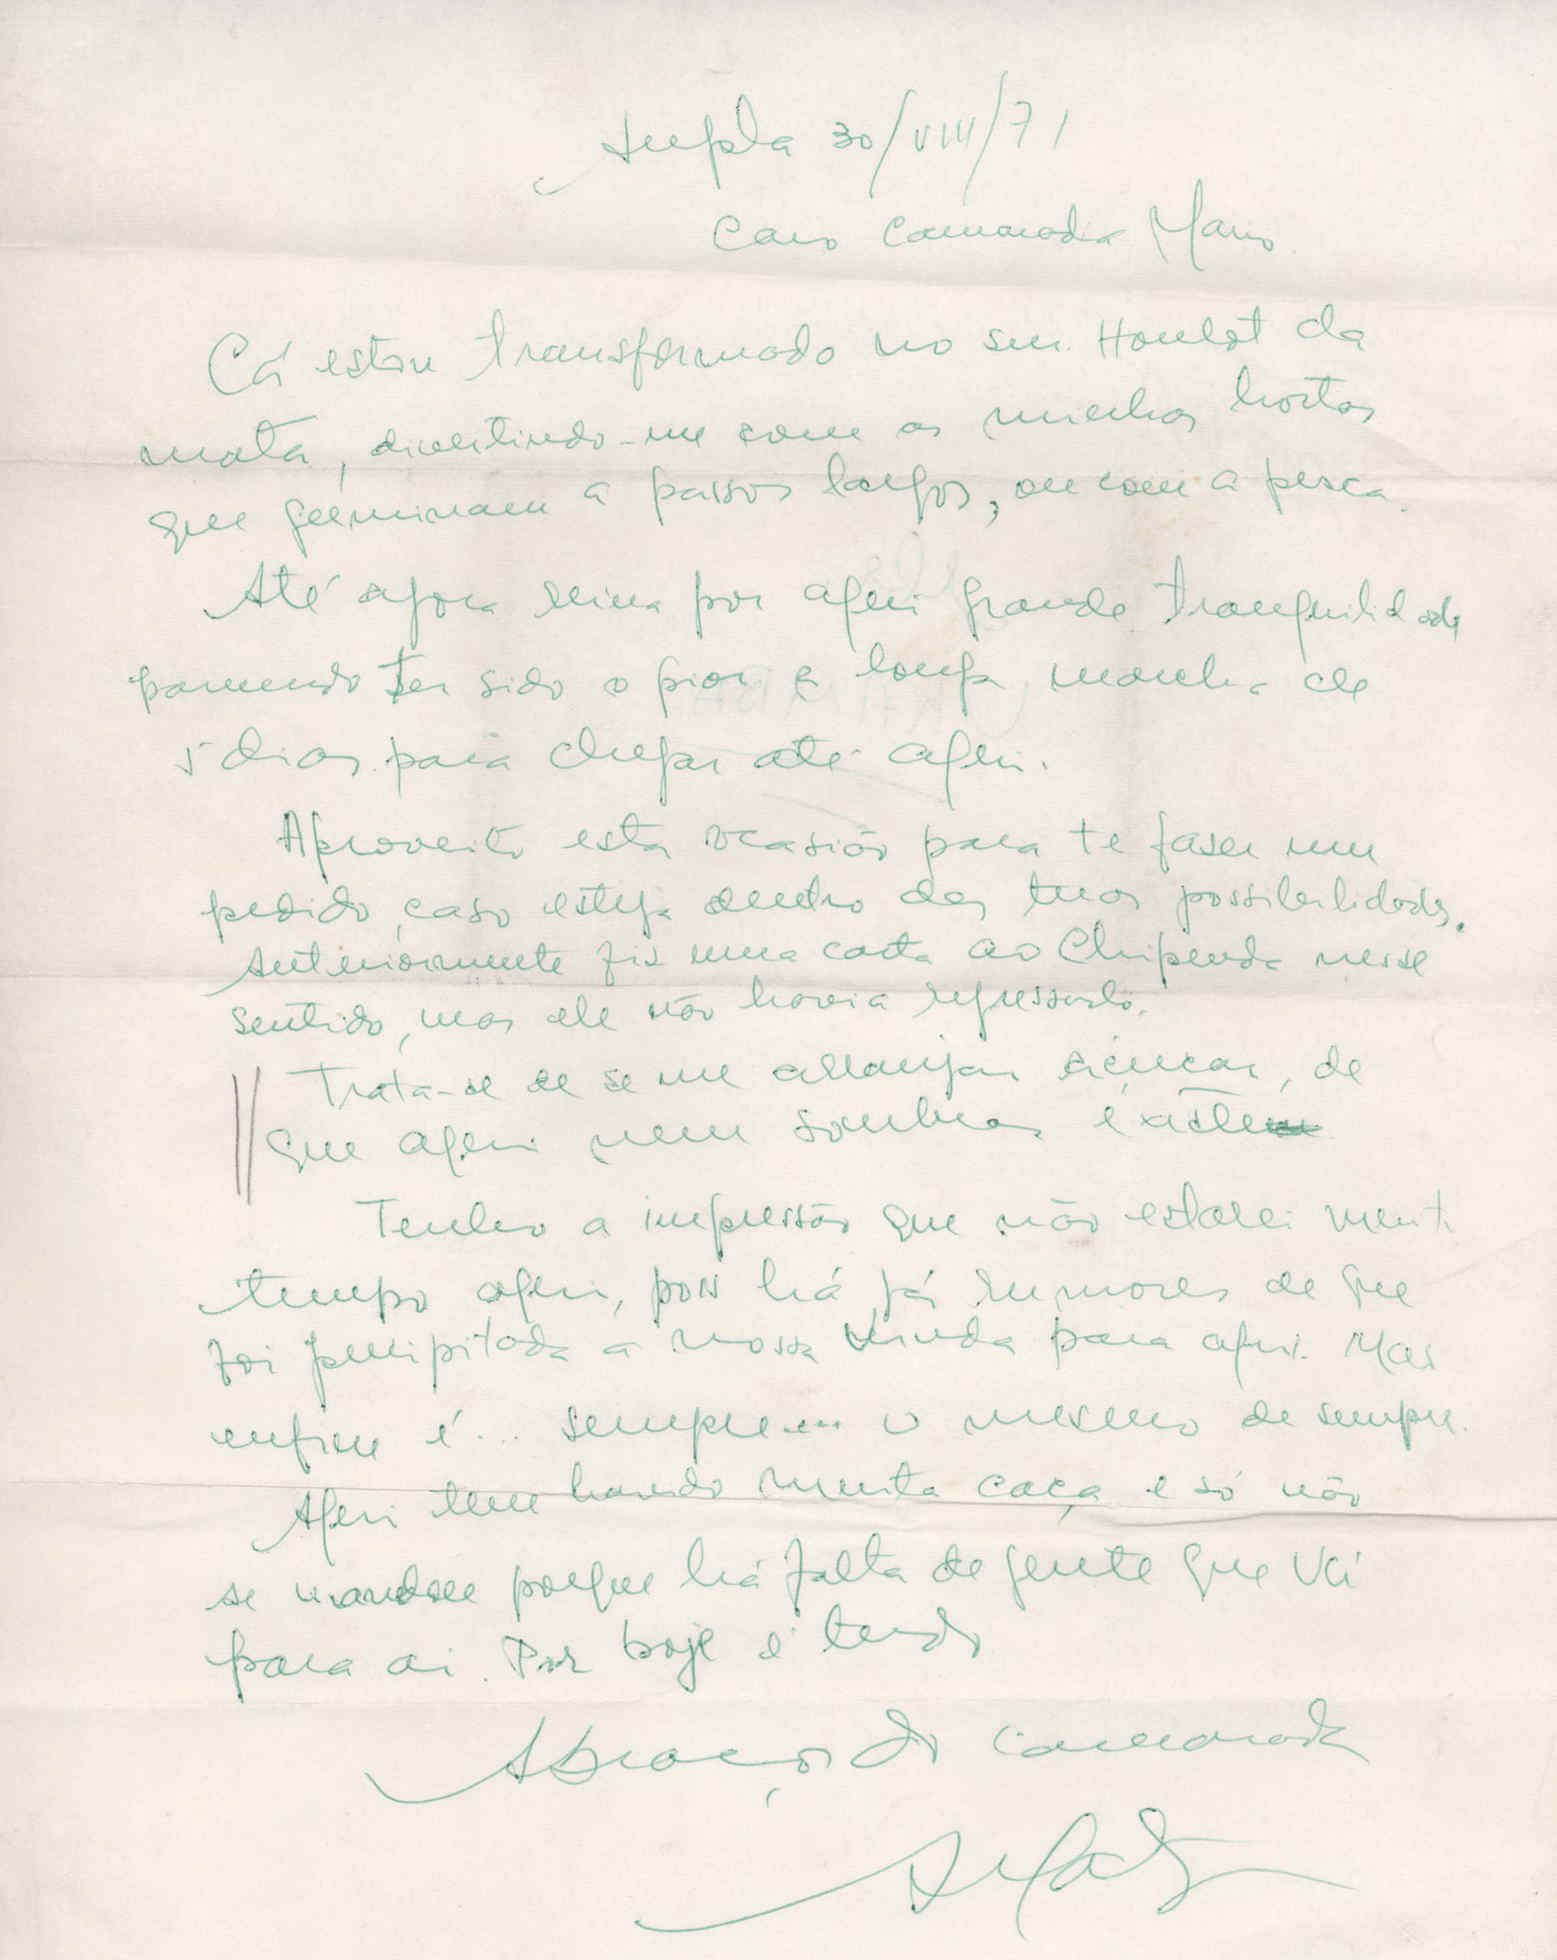 30/VIII/71
Caro Camarada Mario
Cá estou transformado no seu Houlot da
mata, divertindo-me com as minhas hortas
que germinam a passos largos, ou com a pesca.
Até agora reina por aqui grande tranquilidade
parecendo ter sido o pior a longa marcha de
5 dias para chegar até aqui.
Aproveito esta ocasião para te faser um
pedido, caso esteja dentro das tuas possibilidades.
Anteriormente fiz uma carta ao Chipenda nesse
sentido, mas ele não havia regressado.
Trata-se de se me arranjar açucar, de
que aqui nem sombras existe
Tenho a impressão que não estarei muito
tempo aqui, pois há já rumores de que
foi precipitada a nossa vinda para aqui. Mas
enfim é... sempre... o mesmo de sempre.
Aqui tem havido muita caça e só não
se mandou porque há falta de gente que vá
para ai. Por hoje é tudo
Abraços do camarada